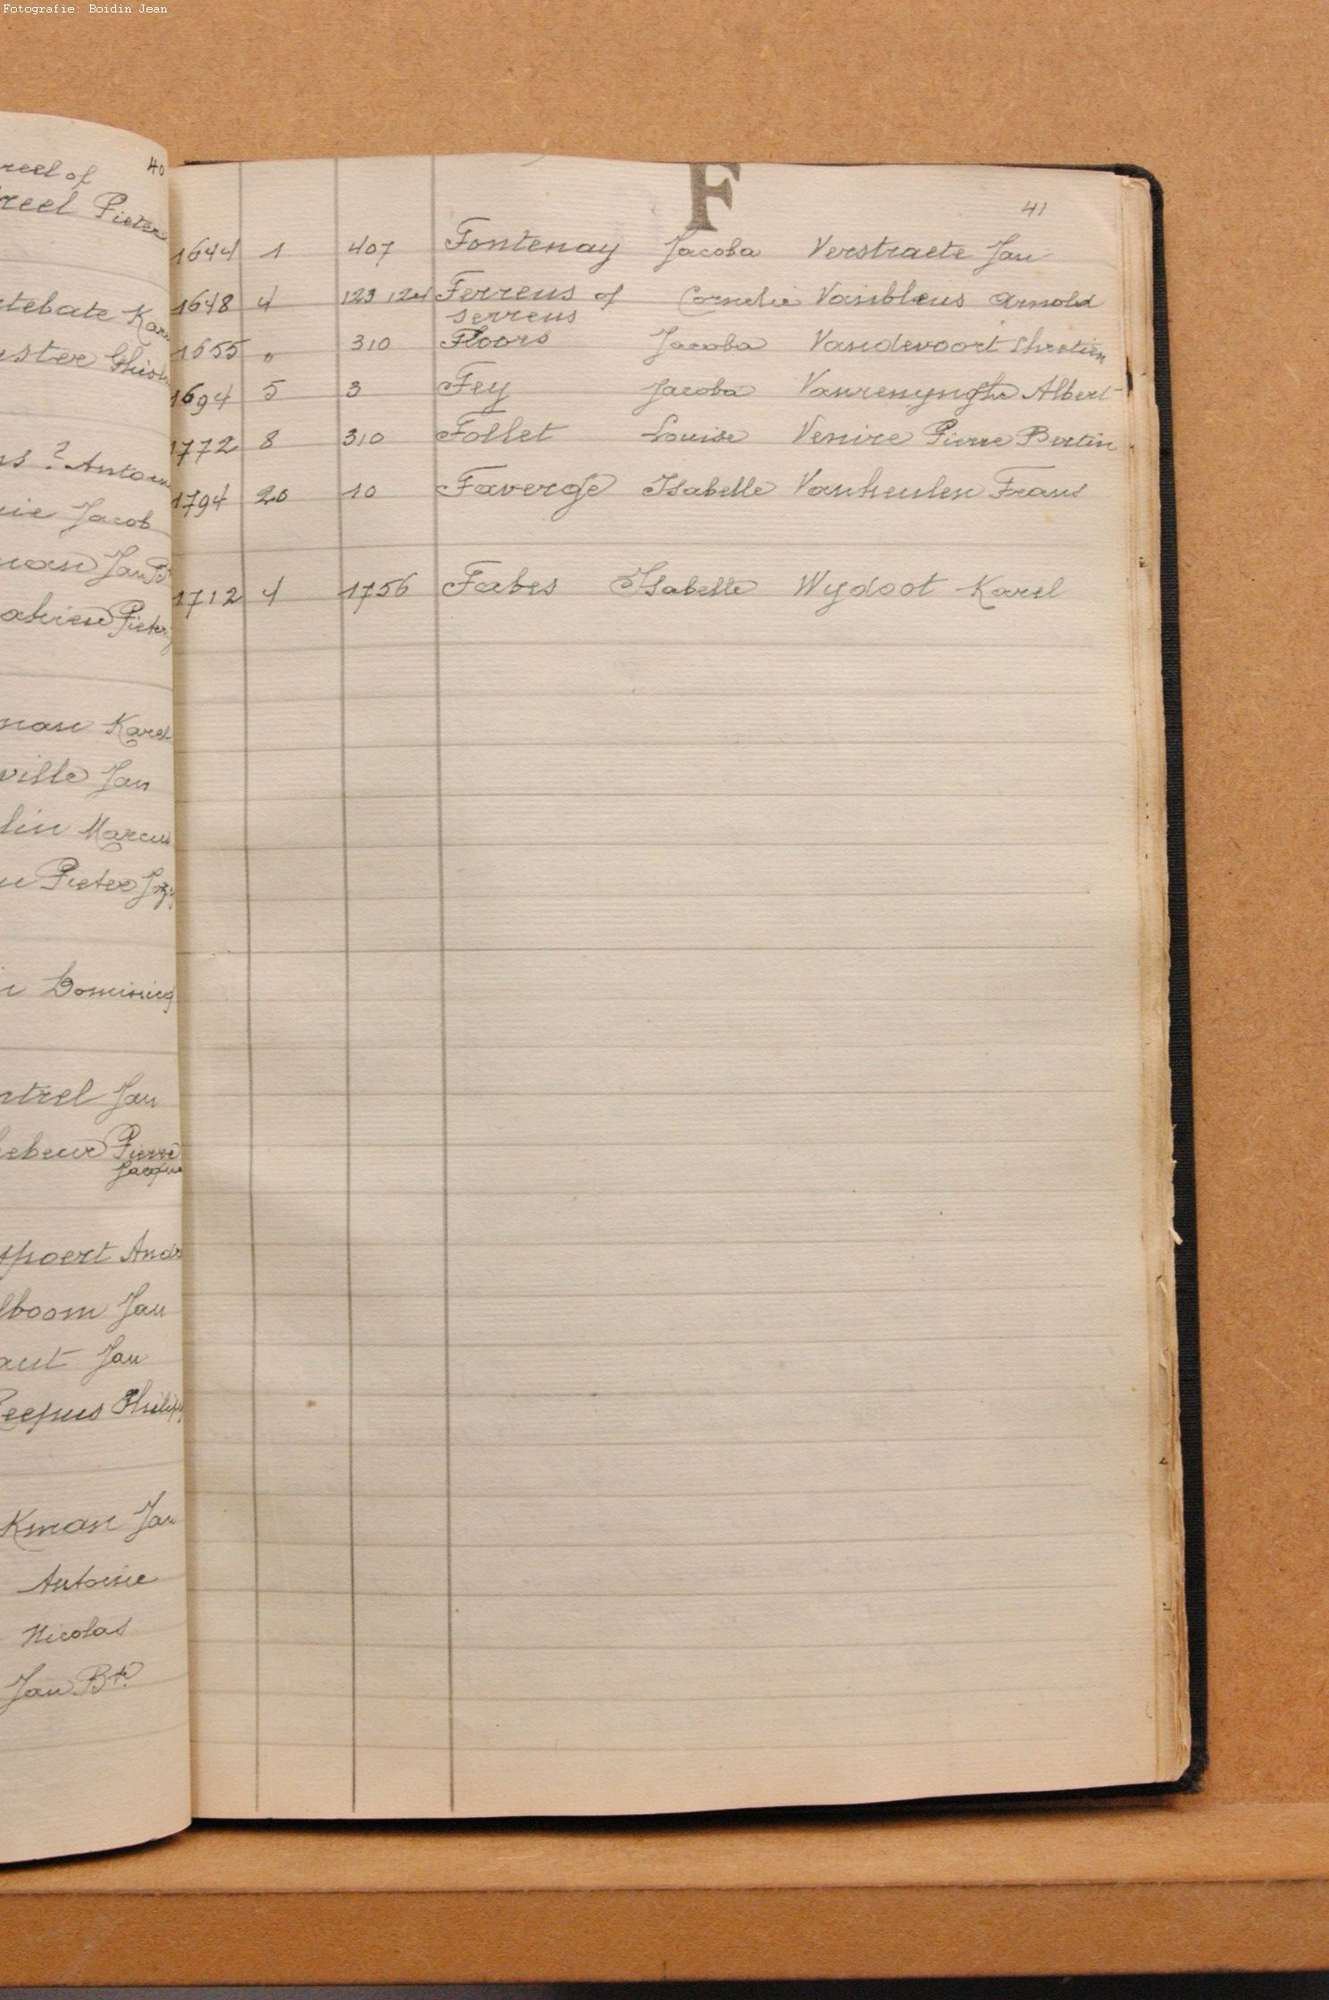 Fotografie: Boidin Jean
40
reel of
reel Pieter
tebate
ster
? Antoin
Jacob
Jan
Pieter
man Karel
ville Jan
lin Marcus
Pieter
Dominicq
ntrel Jan
ebeur Pierre
Jacque
poert And
lboom Jan
aut Jan
eepus Philip
Kman Jan
Antoine
Nicolas
Jan Bte
F
41
1644 1 407 Fontenay Jacoba Verstraete Jan
1648 4 123 124 Ferrens of Cornelie Arnold
serrens
1655 " 310 Floors Jacoba Vandevoort Chretien
1694 5 3 Fey Jacoba Vanrenynghe Albert
1772 8 310 Follet Louise Venire Pierre Bertin
1794 20 10 Faverge Isabelle Vanheulen Frans
1712 4 1756 Fabes Isabelle Wydoot Karel